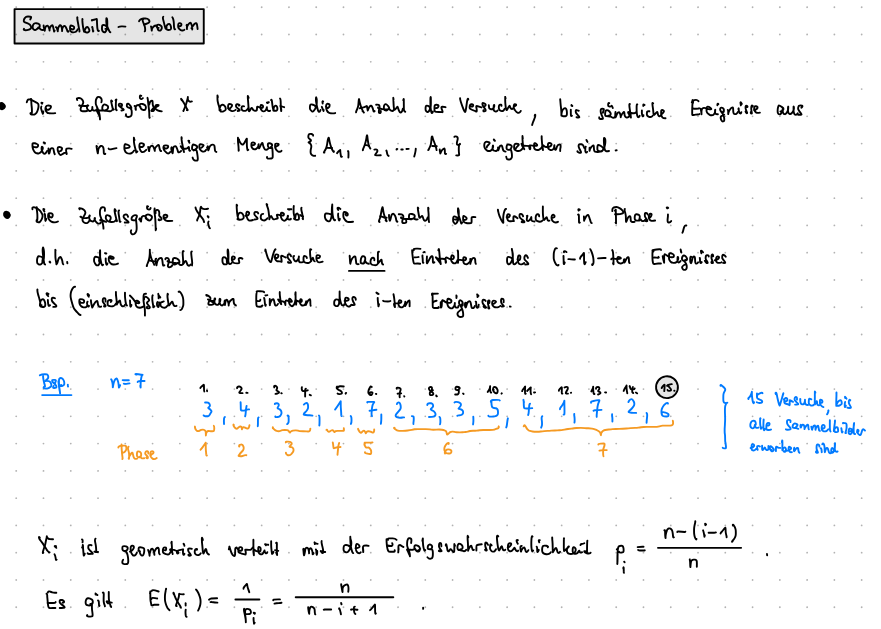 Sammelbild - Problem
• Die Zufallsgröße X beschreibt die Anzahl der Versuche, bis sämtliche Ereignisse aus
einer n-elementigen Menge {A₁, A₂, ..., Aₙ} eingetreten sind.
• Die Zufallsgröße Xᵢ beschreibt die Anzahl der Versuche in Phase i,
d.h. die Anzahl der Versuche nach Eintreten des (i-1)-ten Ereignisses
bis (einschließlich) zum Eintreten des i-ten Ereignisses.
1. 2. 3. 4. 5. 6. 7. 8. 9. 10. 11. 12. 13. 14. 15.
Bsp. n=7 3, 4, 3, 2, 1, 7, 2, 3, 3, 5, 4, 1, 7, 2, 6
Phase 1 2 3 4 5 6 7
15 Versuche, bis
alle Sammelbilder
erworben sind
Xᵢ ist geometrisch verteilt mit der Erfolgswahrscheinlichkeit pᵢ = (n-(i-1))/n .
Es gilt E(Xᵢ) = 1/pᵢ = n/(n-i+1) .